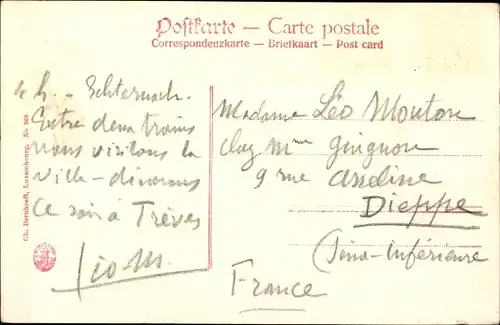 Postkarte — Carte postale
Correspondenzkarte — Briefkaart — Post card
4 h. - Echternach.
Entre deux trains
nous visitons la
ville - dînerons
ce soir à Trèves
Léo M.
Madame Léo Mouton
chez Mme Guignon
9 rue Asseline
Dieppe
(Seine-Inférieure
France
Ch. Bernhoeft, Luxembourg. No